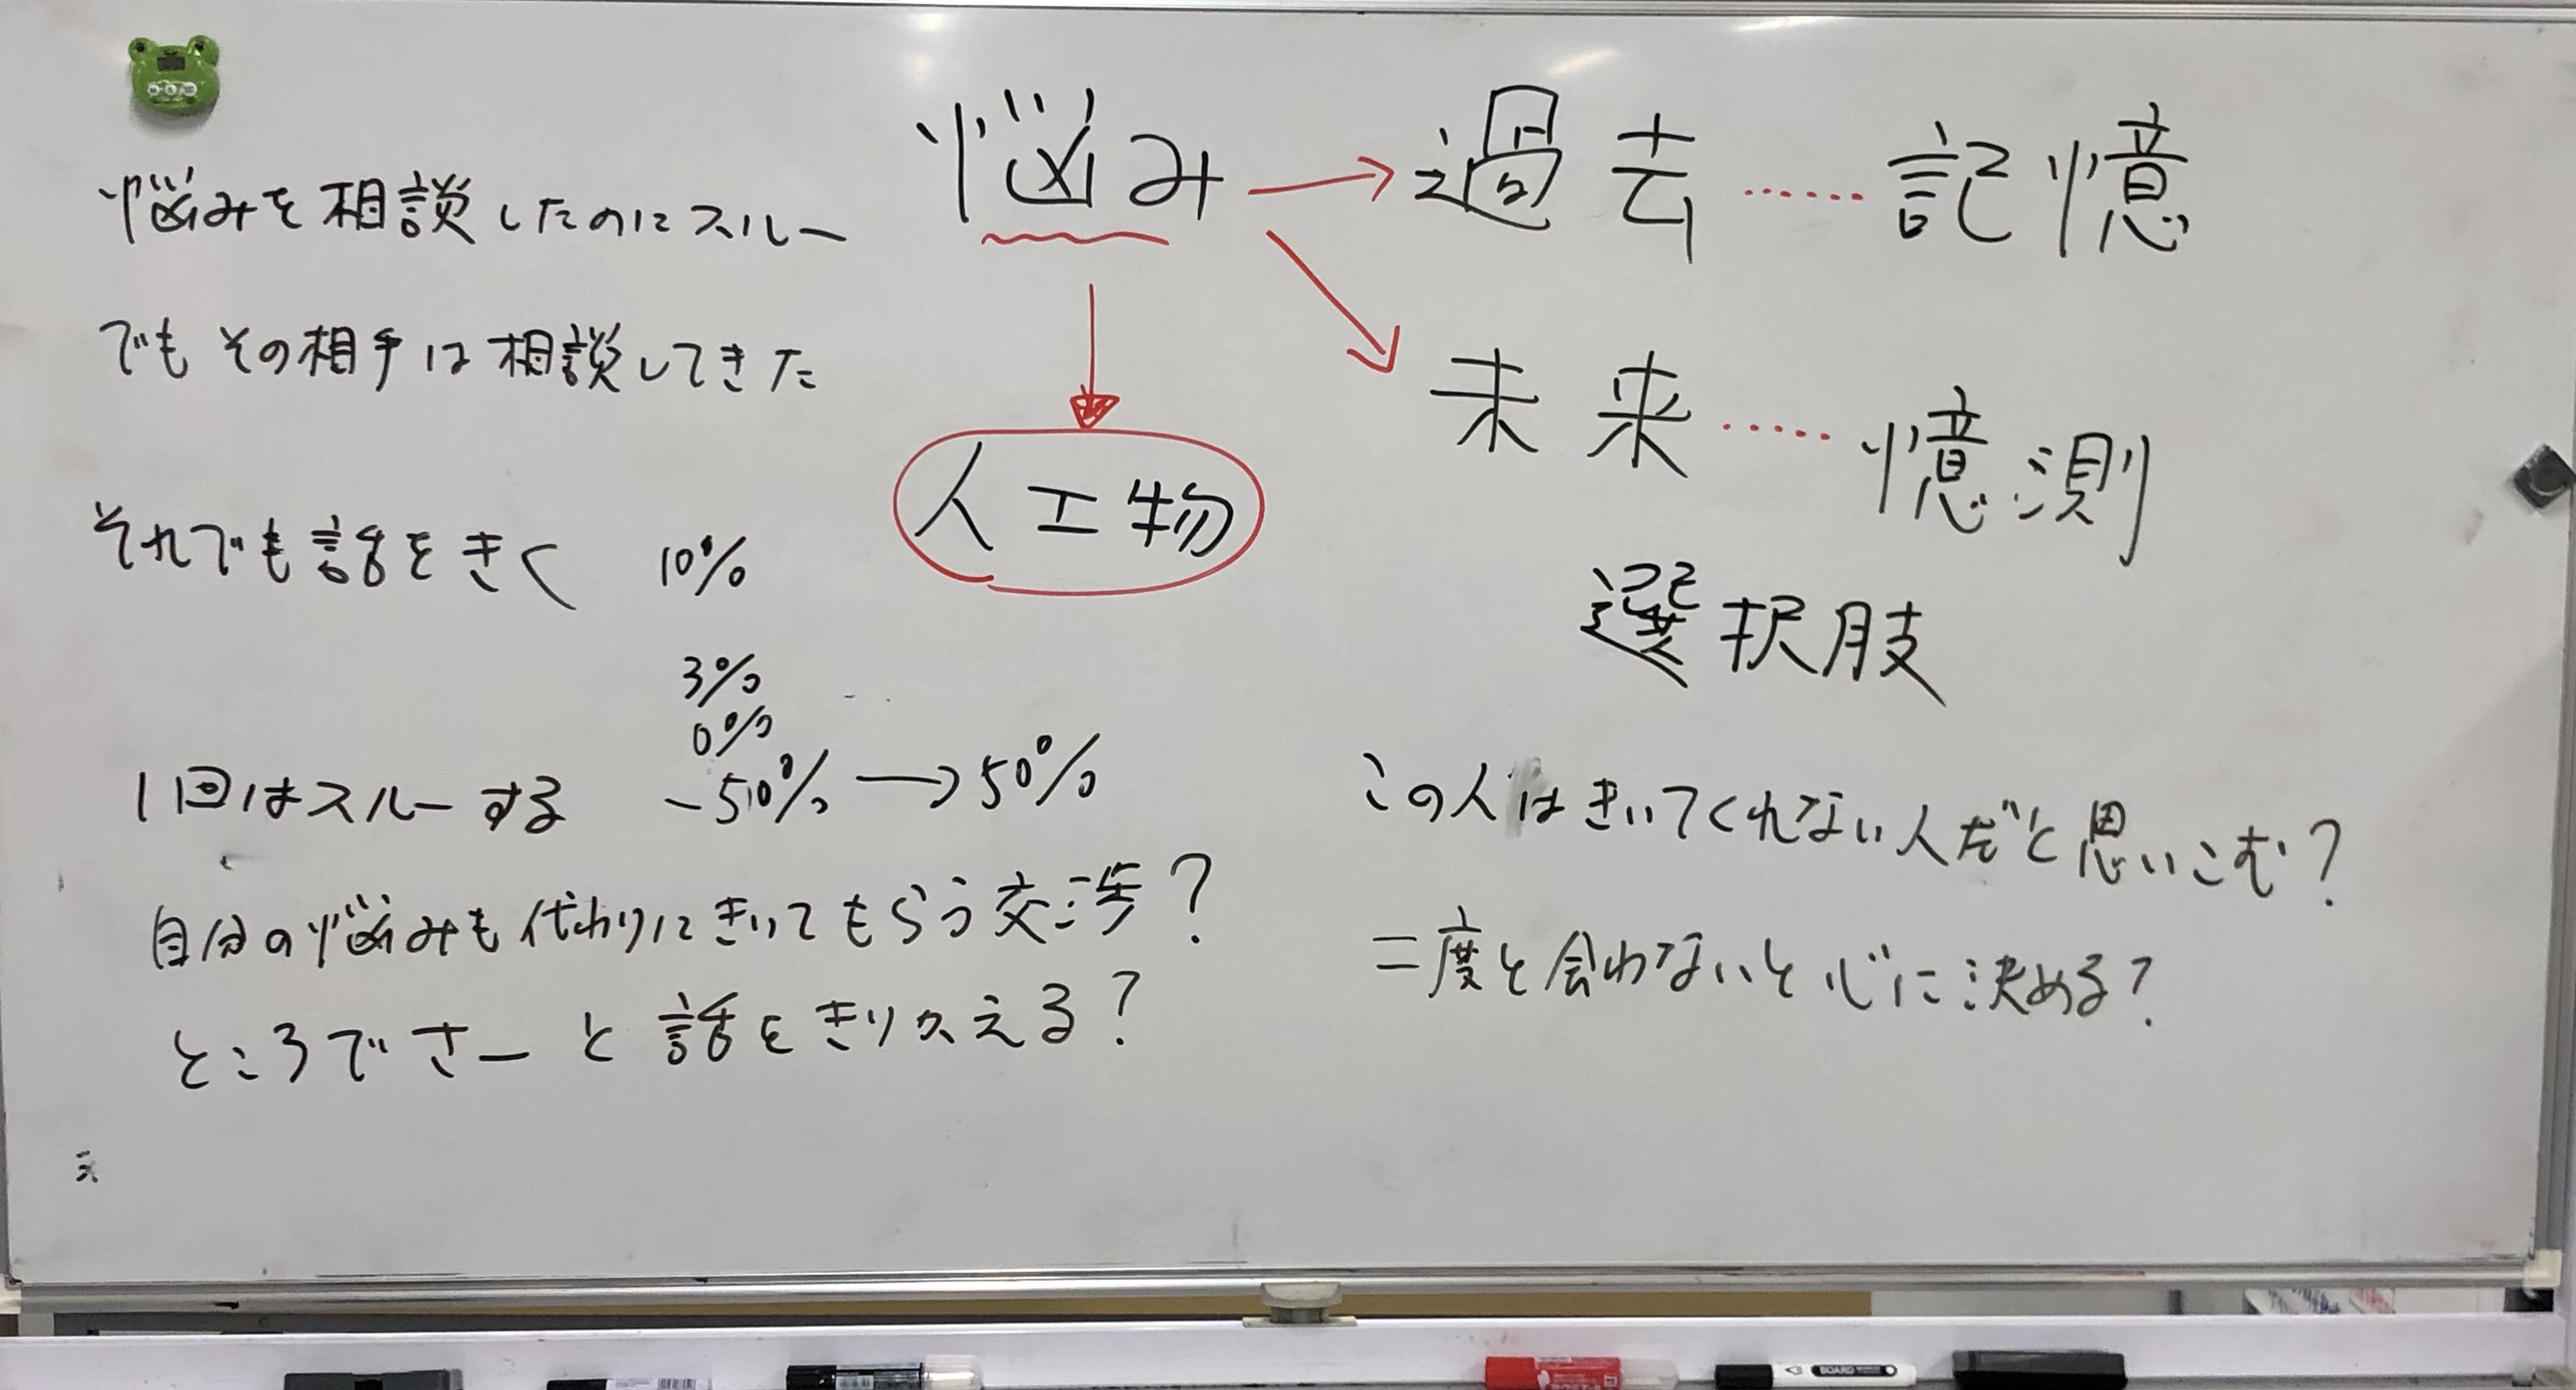 悩みを相談したのにスルー
でもその相手は相談してきた
それでも話をきく 10%
3%
0%
1回はスルーする -50% → 50%
自分の悩みも代わりにきいてもらう交渉?
ところでさーと話をきりかえる?
悩み → 過去 …… 記憶
未来 …… 憶測
人工物
選択肢
この人はきいてくれない人だと思いこむ?
二度と会わないと心に決める?
BOARD